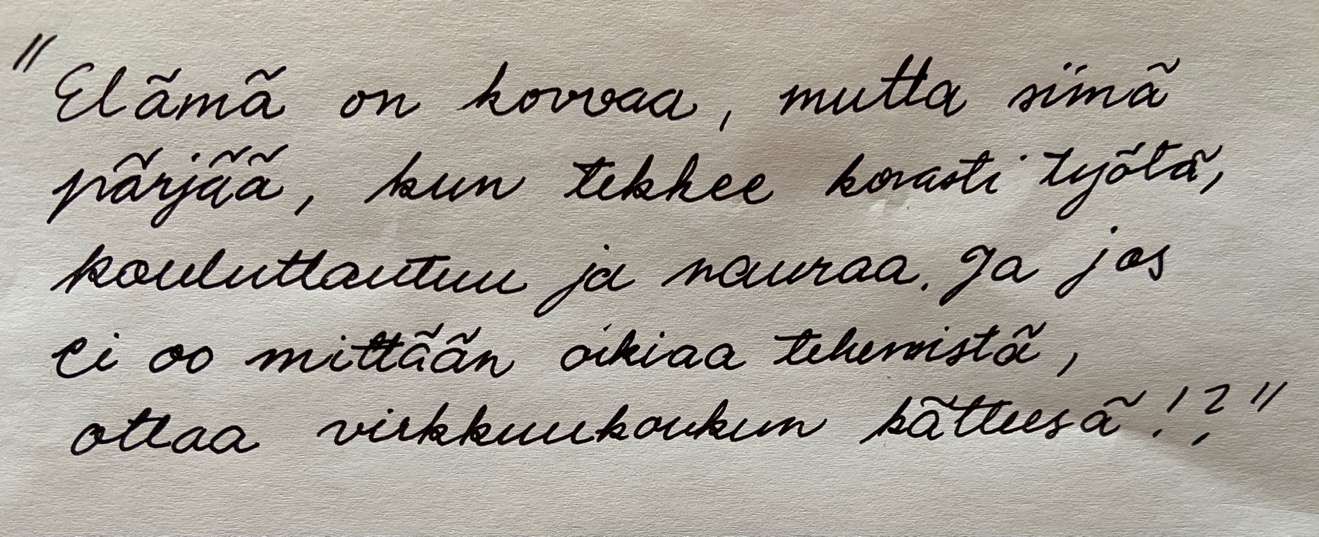 "Elämä on kovvaa, mutta siinä
pärjää, kun tekkee kovasti työtä,
kouluttautuu ja nauraa. Ja jos
ei oo mittään oikiaa tekemistä,
ottaa virkkuukoukun kätteesä!?"